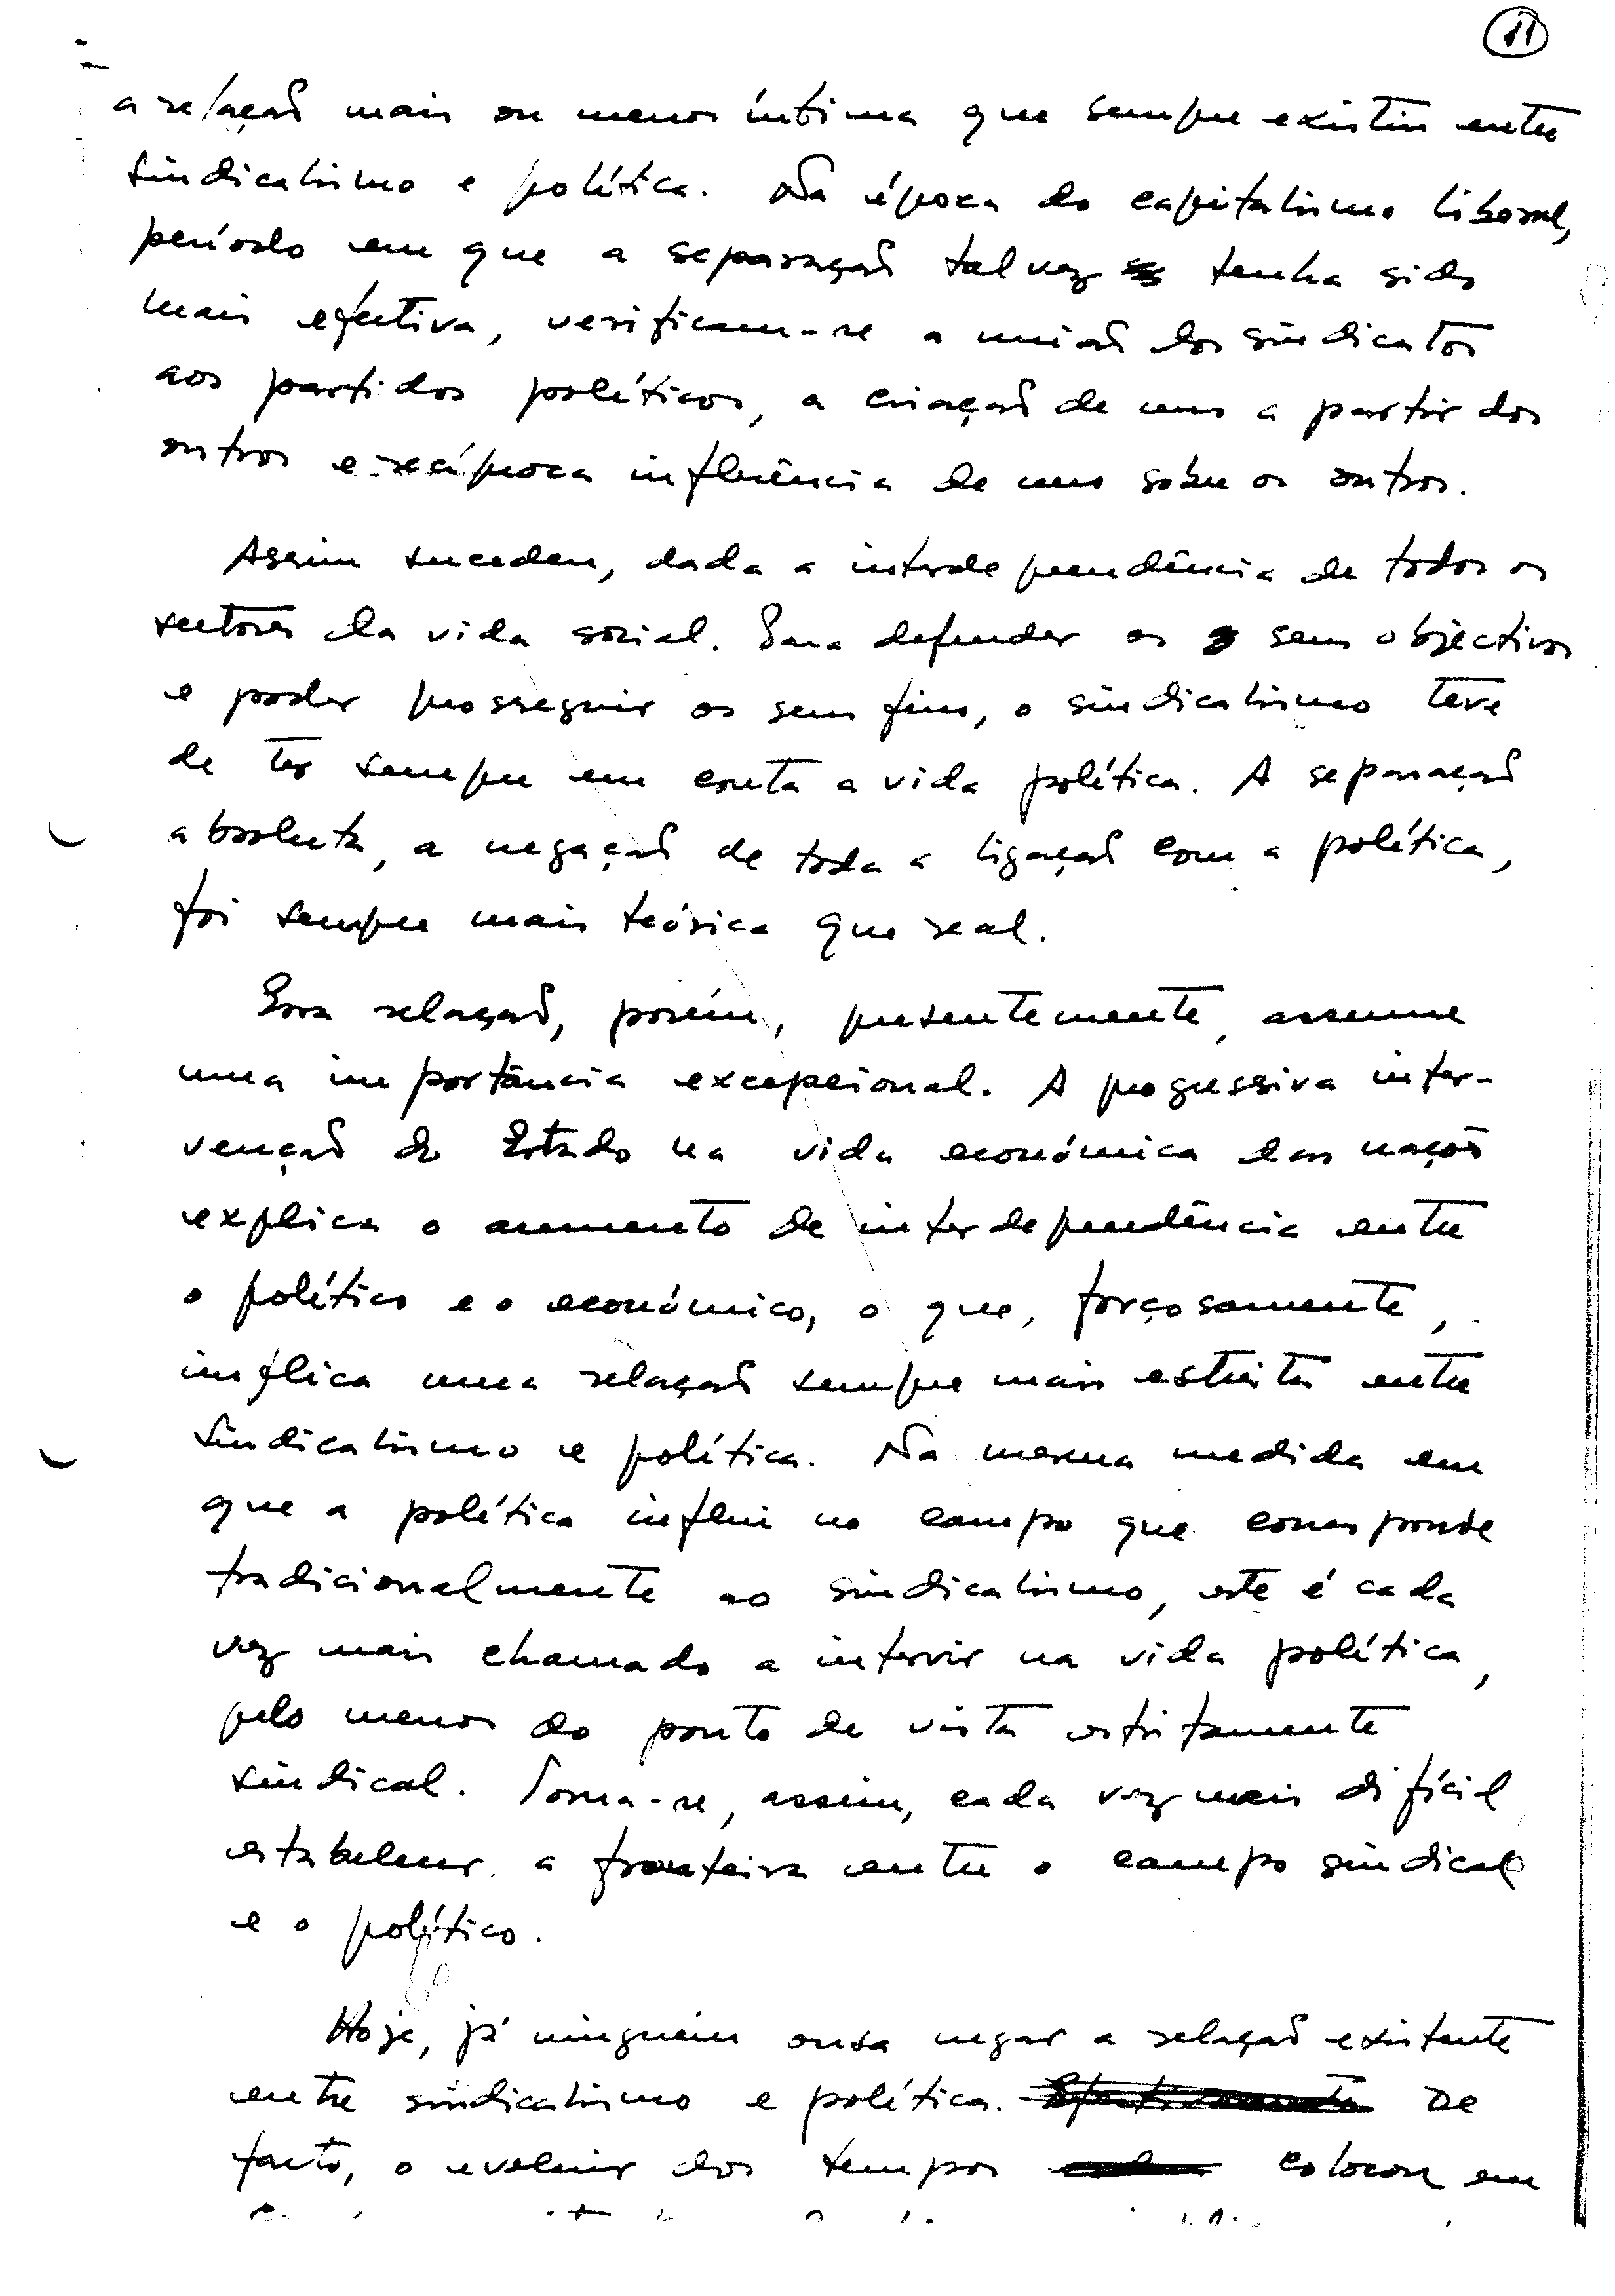 11
a relação mais ou menos íntima que sempre existiu entre
sindicalismo e política. Na época do capitalismo liberal,
período em que a separação talvez tenha sido
mais efectiva, verificam-se a união dos sindicatos
aos partidos políticos, a criação de uns a partir dos
outros e recíproca influência de uns sobre os outros.
Assim sucedeu, dada a interdependência de todos os
sectores da vida social. Para defender os seus objectivos
e poder prosseguir os seus fins, o sindicalismo teve
de ter sempre em conta a vida política. A separação
absoluta, a negação de toda a ligação com a política,
foi sempre mais teórica que real.
Essa relação, porém, presentemente, assume
uma importância excepcional. A progressiva inter-
venção do Estado na vida económica das nações
explica o aumento de interdependência entre
o político e o económico, o que, forçosamente,
implica uma relação sempre mais estreita entre
sindicalismo e política. Na mesma medida em
que a política influi no campo que corresponde
tradicionalmente ao sindicalismo, este é cada
vez mais chamado a intervir na vida política,
pelo menos do ponto de vista estritamente
sindical. Torna-se, assim, cada vez mais difícil
estabelecer a fronteira entre o campo sindical
e o político.
Hoje, já ninguém ousa negar a relação existente
entre sindicalismo e política. De
facto, o evoluir dos tempos colocou em